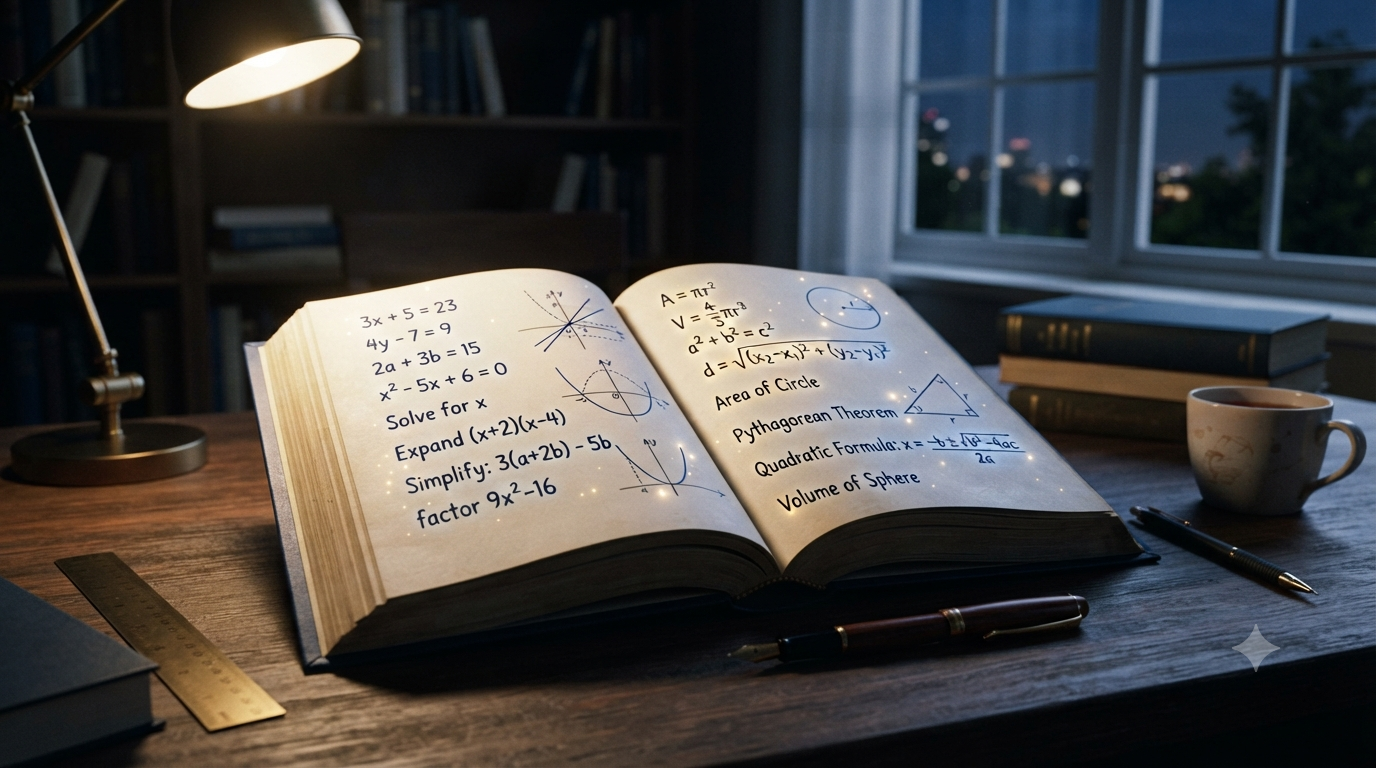 3x + 5 = 23
4y - 7 = 9
2a + 3b = 15
x² - 5x + 6 = 0
Solve for x
Expand (x+2)(x-4)
Simplify: 3(a+2b) - 5b
factor 9x²-16
A = πr²
V = 4/3 πr³
a² + b² = c²
d = √(x₂-x₁)² + (y₂-y₁)²
Area of Circle
Pythagorean Theorem
Quadratic Formula: x = -b ± √b² - 4ac / 2a
Volume of Sphere